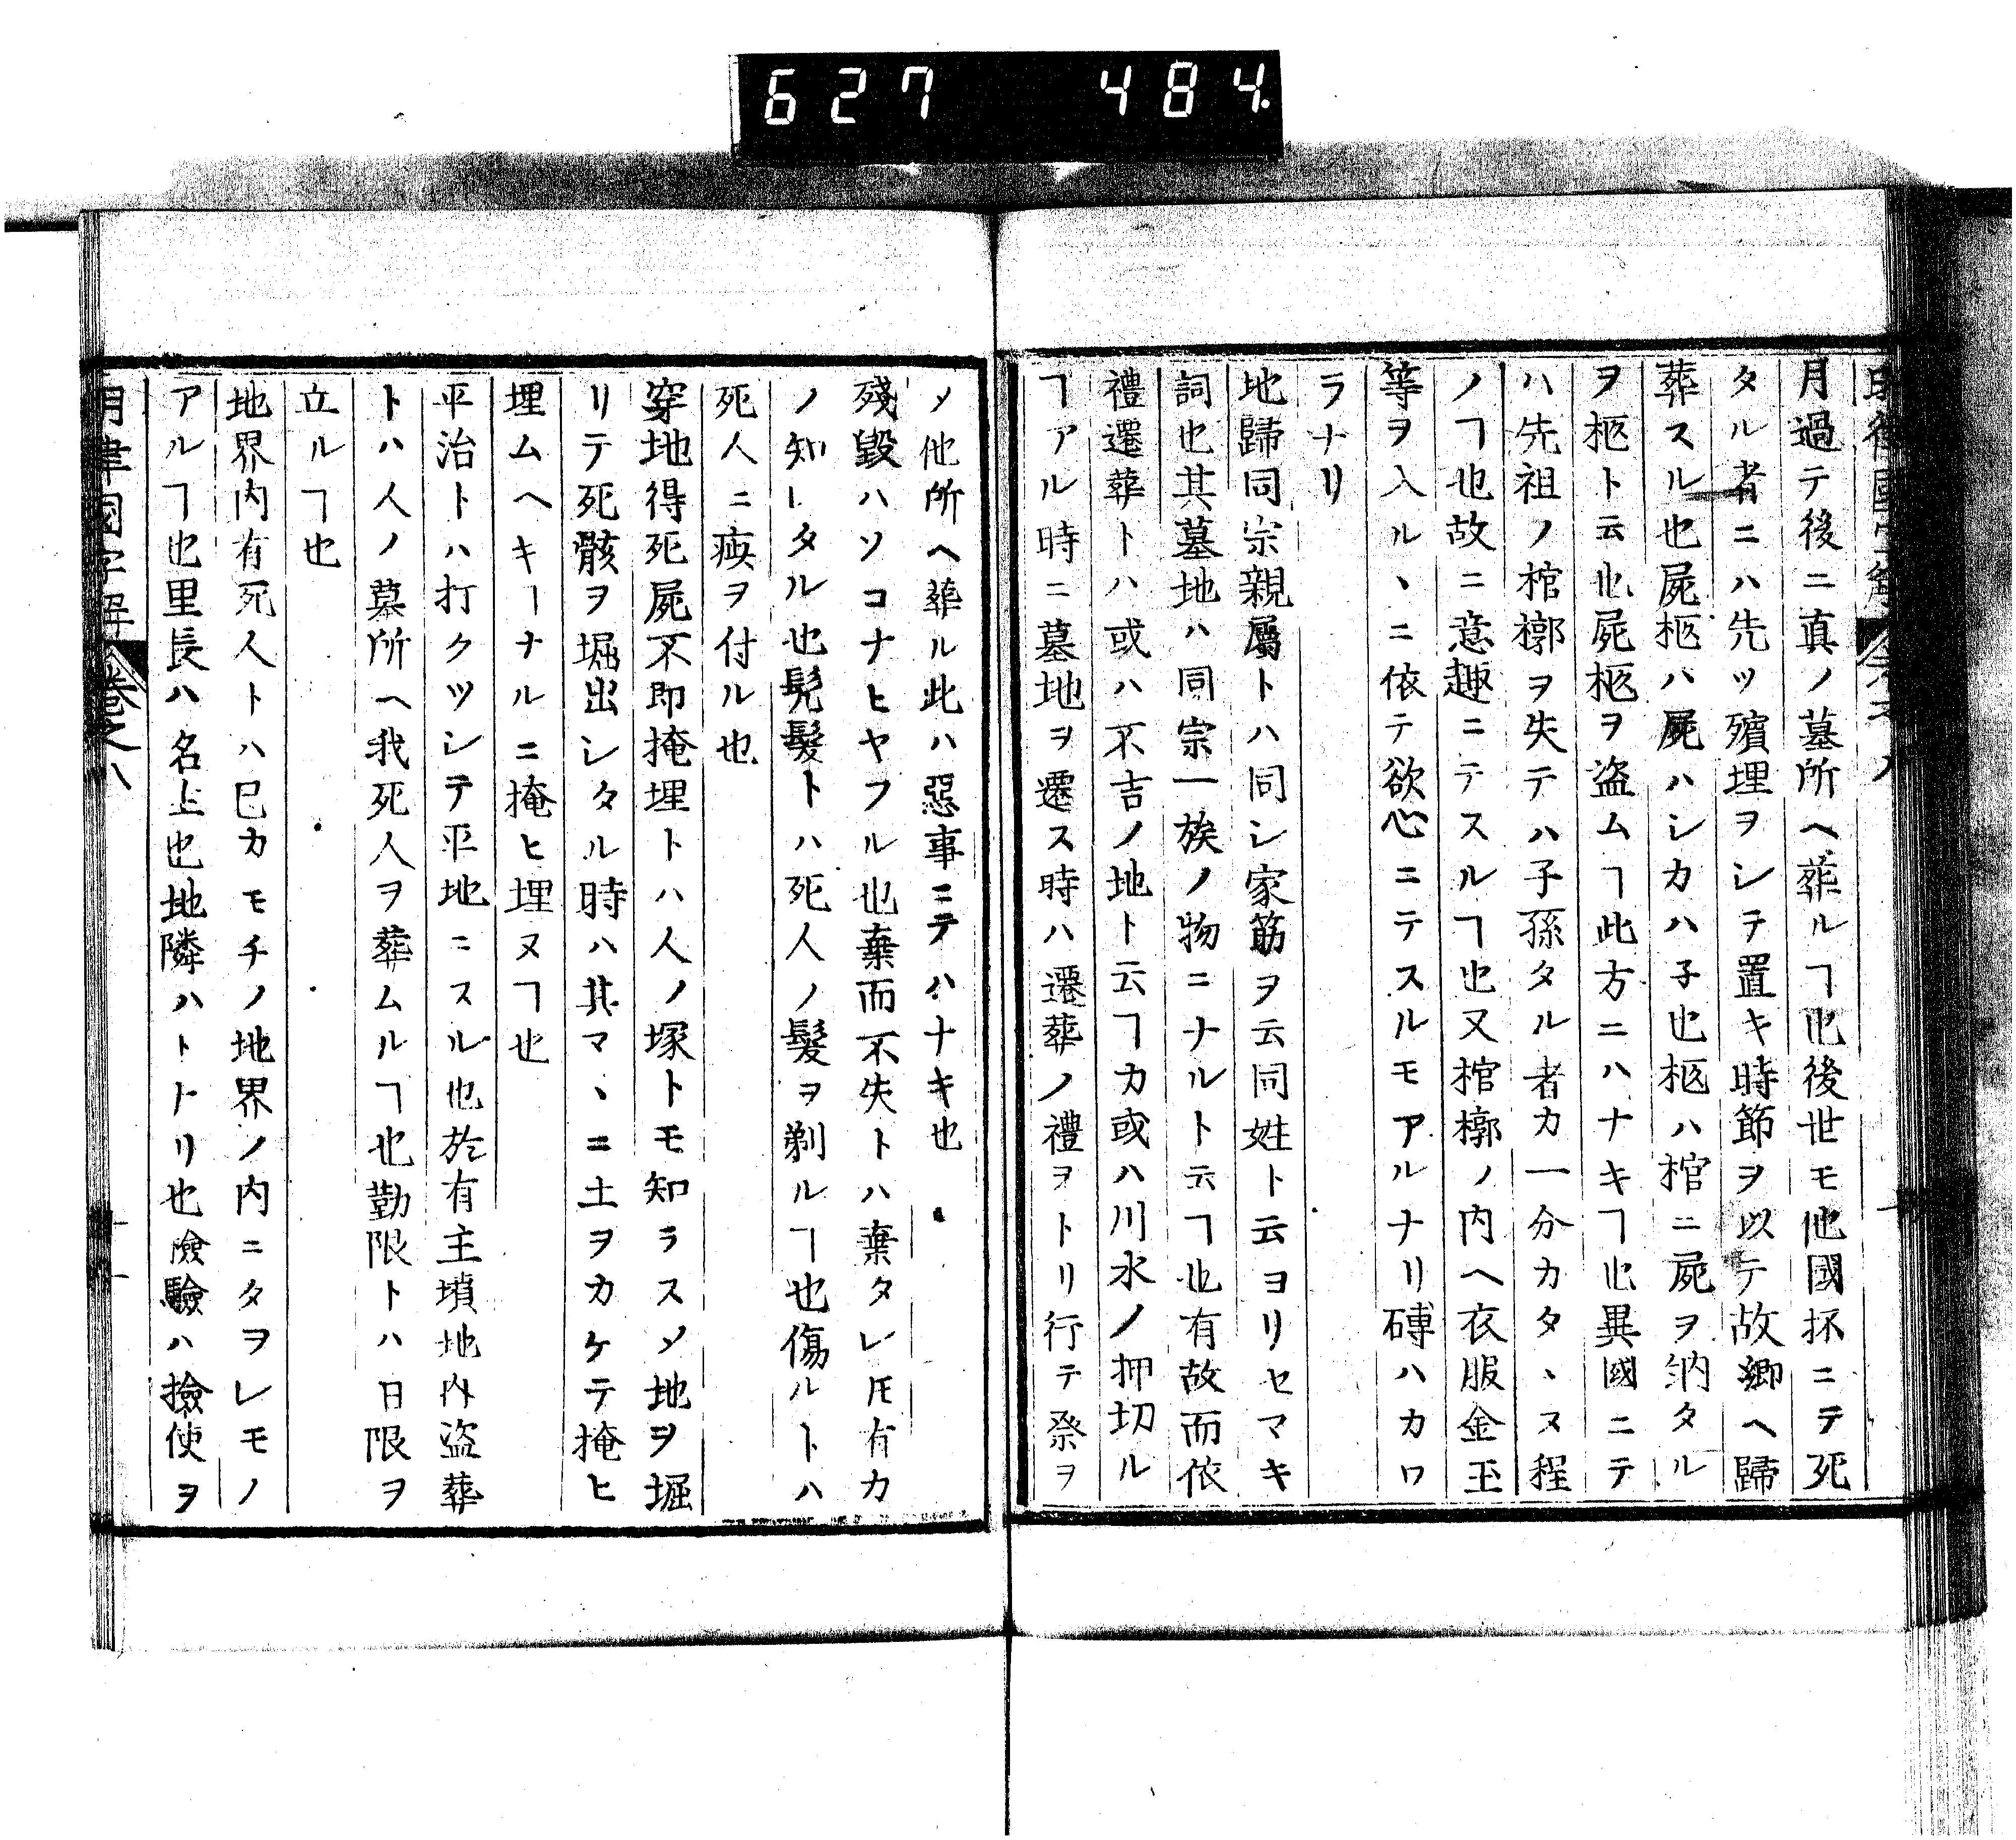 627 484.
月過テ後ニ真ノ墓所ヘ葬ルヿ也後世モ他國抔ニテ死
タル者ニハ先ツ殯埋ヲシテ置キ時節ヲ以テ故郷ヘ歸
葬スル也屍柩ハ屍ハシカハ子也柩ハ棺ニ屍ヲ納タル
ヲ柩ト云也屍柩ヲ盗ムヿ此方ニハナキヿ也異國ニテ
ハ先祖ノ棺槨ヲ失テハ子孫タル者カ一分カタヽヌ程
ノヿ也故ニ意趣ニテスルヿ也又棺槨ノ内ヘ衣服金玉
等ヲ入ルヽニ依テ欲心ニテスルモアルナリ磚ハカワ
ラナリ
地歸同宗親屬トハ同シ家筋ヲ云同姓ト云ヨリセマキ
詞也其墓地ハ同宗一族ノ物ニナルト云ヿ也有故而依
禮遷葬トハ或ハ不吉ノ地ト云ヿカ或ハ川水ノ押切ル
ヿアル時ニ墓地ヲ遷ス時ハ遷葬ノ禮ヲトリ行テ祭ヲ
〆他所ヘ葬ル此ハ惡事ニテハナキ也
殘毀ハソコナヒヤフル也棄而不失トハ棄タレ𪜈有カ
ノ知レタル也髠髮トハ死人ノ髮ヲ剃ルヿ也傷ルトハ
死人ニ疵ヲ付ル也
穿地得死屍不即掩埋トハ人ノ塚トモ知ラス〆地ヲ堀
リテ死骸ヲ堀出シタル時ハ其マヽニ土ヲカケテ掩ヒ
埋ムヘキーナルニ掩ヒ埋ヌヿ也
平治トハ打クツシテ平地ニスル也於有主墳地内盗葬
トハ人ノ墓所ヘ我死人ヲ葬ムルヿ也勤限トハ日限ヲ
立ルヿ也
地界内有死人トハ已カモチノ地界ノ内ニタヲレモノ
アルヿ也里長ハ名主也地隣ハトトリ也檢驗ハ撿使ヲ
明律國字解 卷之八